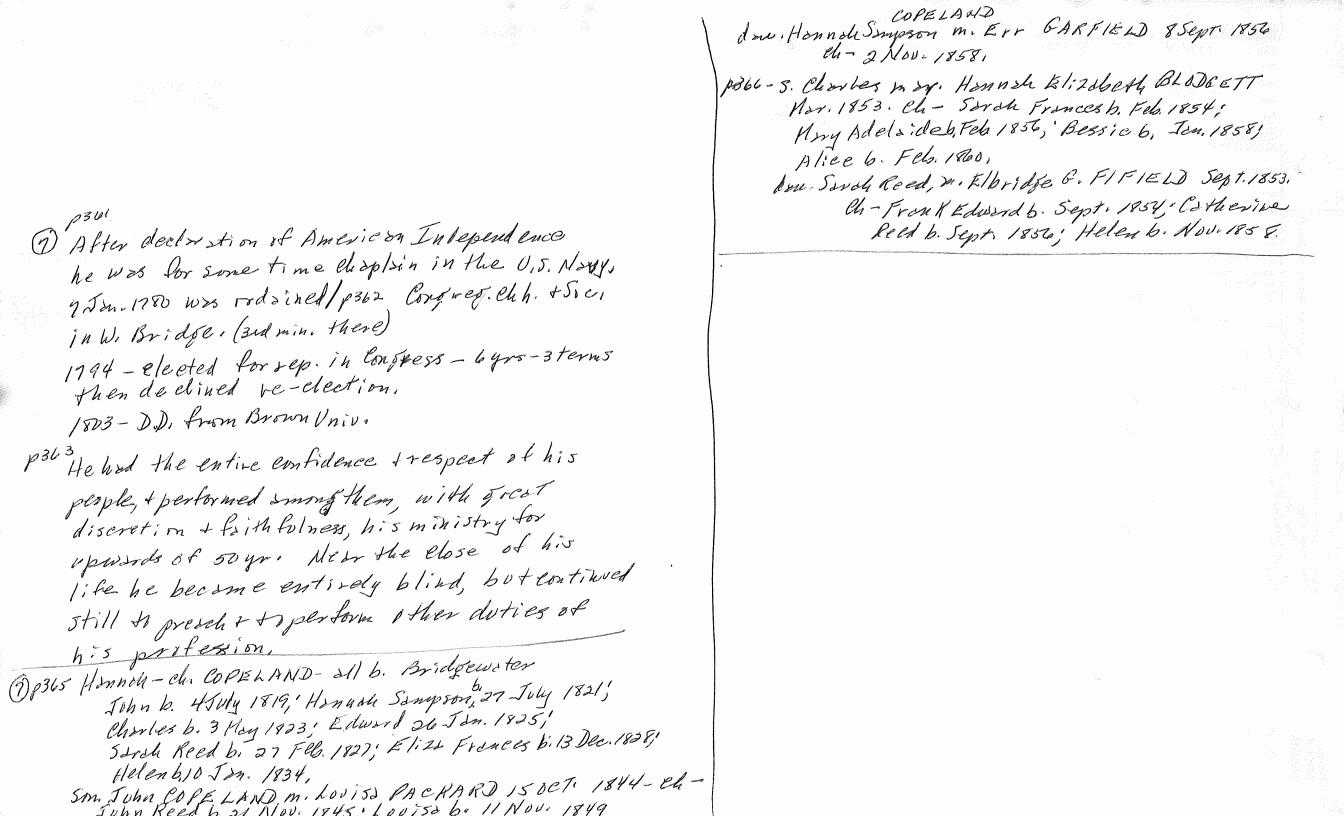 p361
⑦ After declaration of American Independence
he was for some time Chaplain in the U.S. Navy.
7 Jan. 1780 was ordained/p362 Congreg. Chh. + Soc.
in W. Bridge. (3rd min. there)
1794 - elected for rep. in Congress - 6 yrs - 3 terms
then declined re-election.
1803 - D.D. from Brown Univ.
p363 He had the entire confidence + respect of his
people, + performed among them, with great
discretion + faithfulness, his ministry for
upwards of 50 yr. Near the close of his
life he became entirely blind, but continued
still to preach + to perform other duties of
his profession.
⑦ p365 Hannah - ch. COPELAND - all b. Bridgewater
John b. 4 July 1819; Hannah Sampson b. 27 July 1821;
Charles b. 3 May 1823; Edward 26 Jan. 1825;
Sarah Reed b. 27 Feb. 1827; Eliza Frances b. 13 Dec. 1828;
Helen b. 10 Jan. 1834.
Son. John COPELAND m. Louisa PACKARD 15 OCT. 1844 - ch -
John Reed b. 21 Nov. 1845; Louisa b. 11 Nov. 1849
COPELAND
dau. Hannah Sampson m. Err GARFIELD 8 Sept. 1856
ch - 2 Nov. 1858.
p366 - S. Charles mar. Hannah Elizabeth BLODGETT
Mar. 1853. ch - Sarah Frances b. Feb. 1854;
Mary Adelaide b. Feb 1856; Bessie b. Jan. 1858;
Alice b. Feb. 1860.
dau. Sarah Reed, m. Elbridge G. FIFIELD Sept. 1853.
Ch - Frank Edward b. Sept. 1854; Catherine
Reed b. Sept. 1856; Helen b. Nov. 1858.